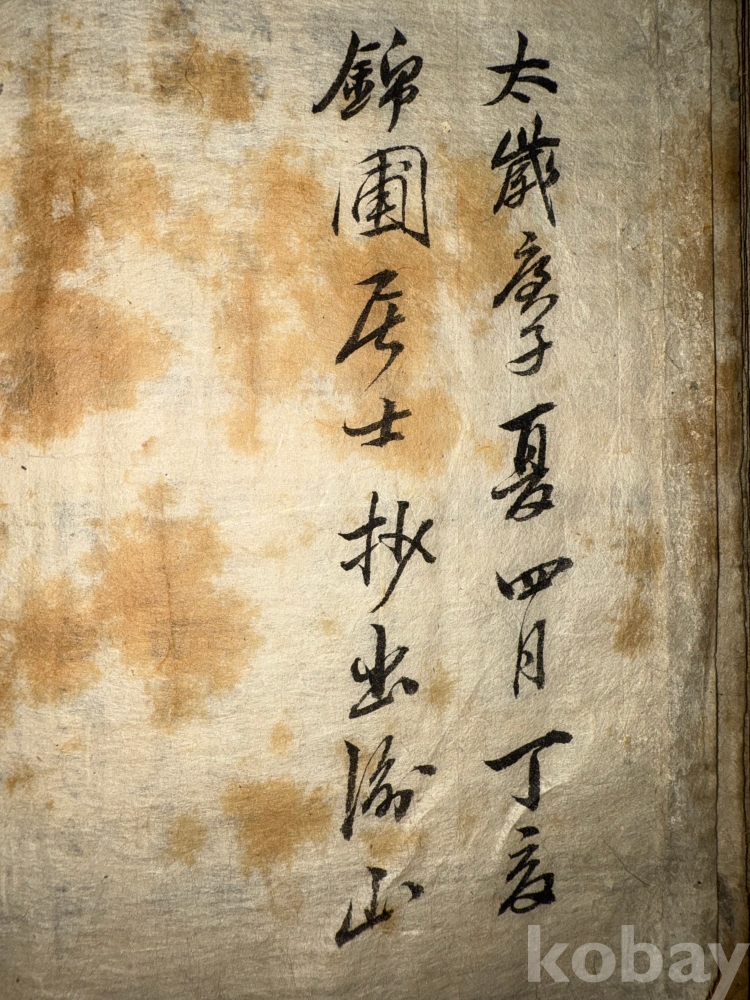 太歲庚子夏四月丁亥
錦圃居士抄出渝山
kobay